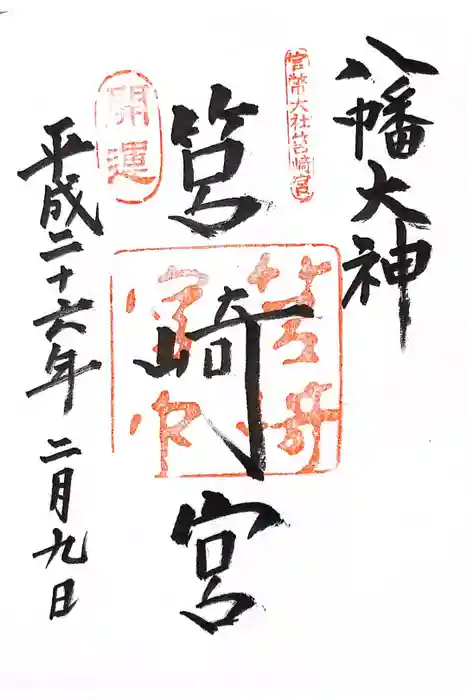 八幡大神
官幣大社筥崎宮
筥崎宮
開運
平成二十六年 二月九日